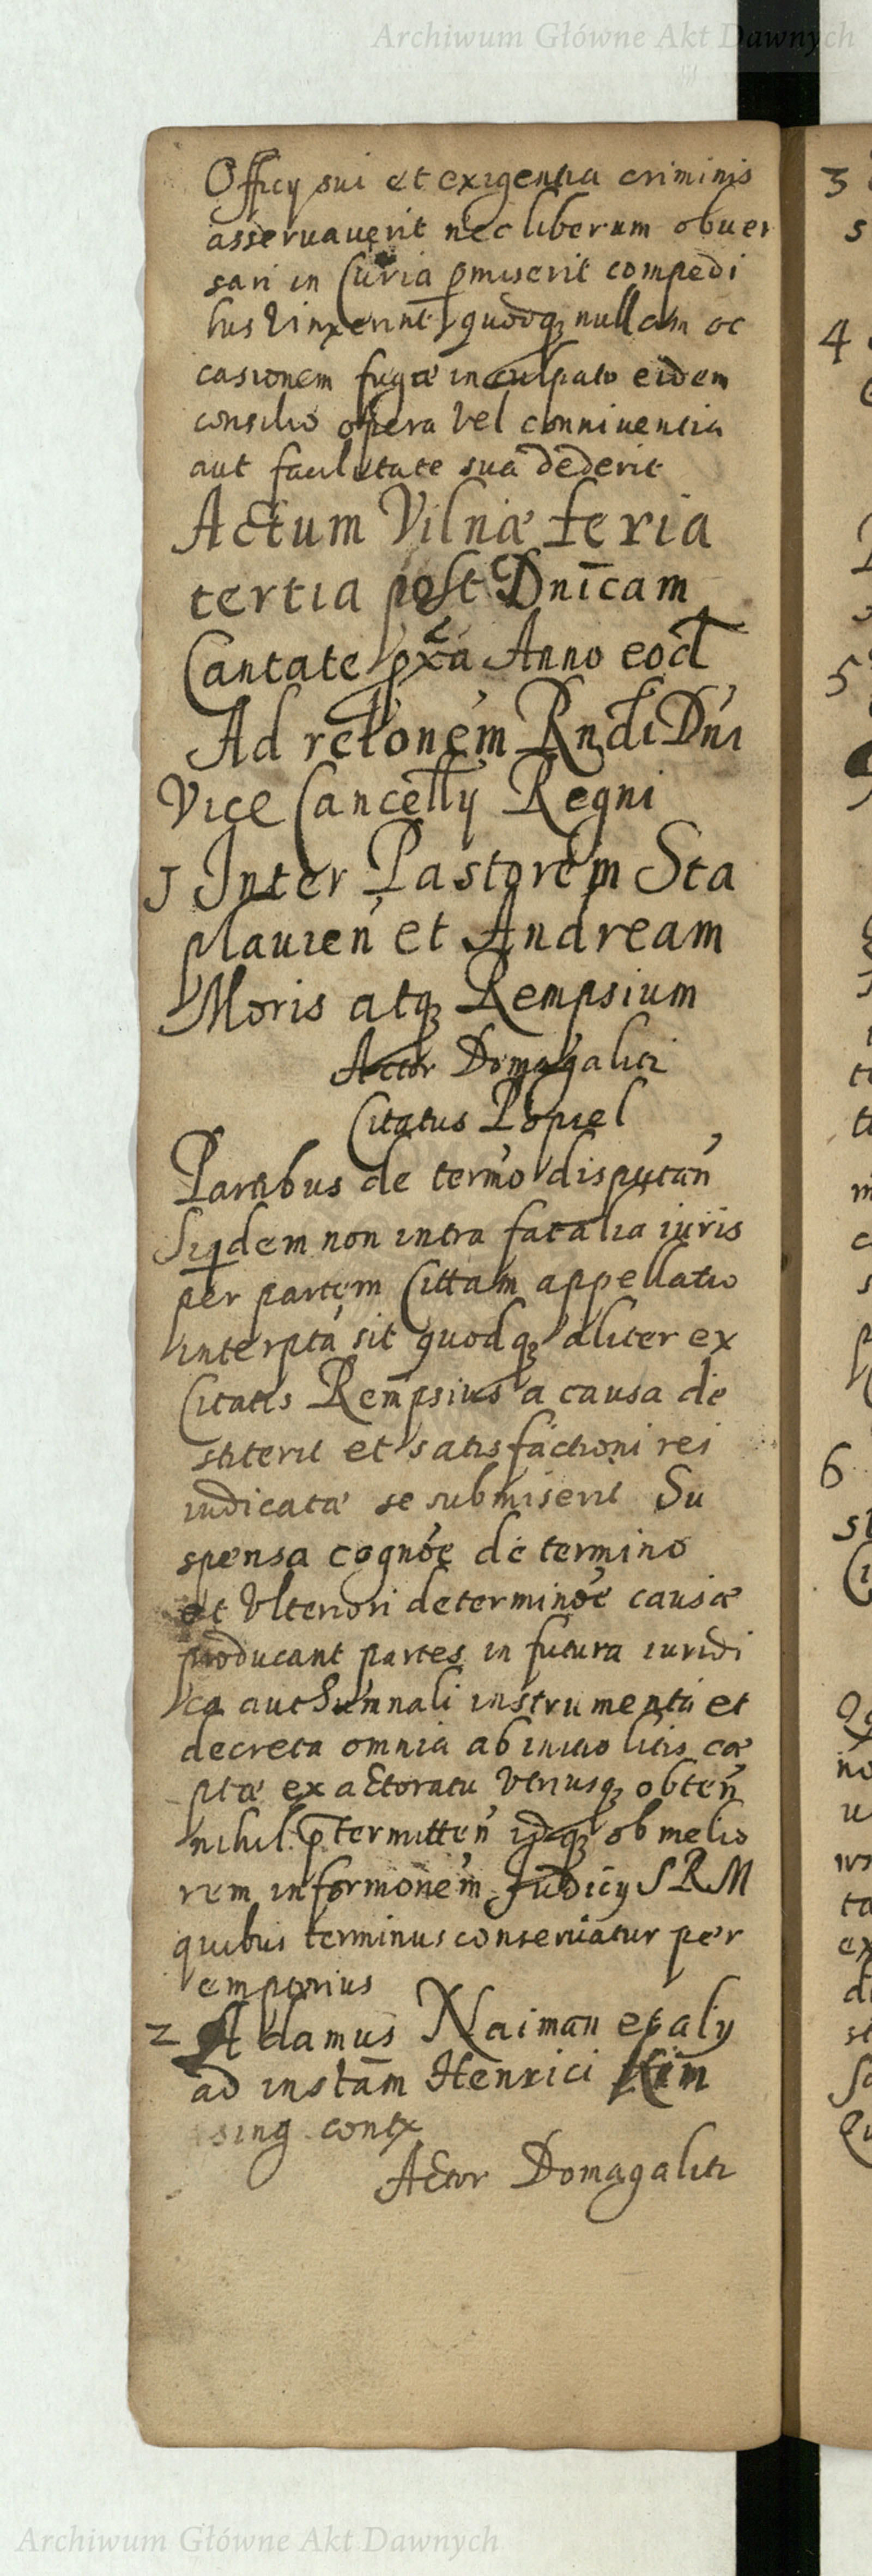 Archiwum Główne Akt Dawnych
Officij sui et exigentia criminis
asseruauerit nec liberum obuer
sari in Curia pmiserit compedi
bus Vinxerint quodq nullam oc
casionem fugæ inculpato eidem
consilio opera vel conniuentia
aut facilitate sua dederit
Actum Vilnæ feria
tertia post Dnicam
Cantate pxa Anno eod
Ad relonem Rndi Dni
Vice Cancellij Regni
1 Inter Pastorem Sta
plauien et Andream
Moris atq Rempsium
Actor Domagalici
Citatus Popiel
Partibus de termo disputan
Siqdem non intra fatalia iuris
per partem Cittam appellatio
interpta sit quodq aliter ex
Citatis Rempsius a causa de
stiterit et satisfactioni rei
iudicatæ se submiserit Su
spensa cognoe de termino
et Vlteriori determinoe causæ
producant partes in futura iuridi
ca aut
instrumenta et
decreta omnia ab initio litis cæ
ptæ ex actoratu Vtriusq obten
nihil ptermitten idq ob melio
rem informonem Judicij SRM
quibus terminus conseruatur per
emptorius
2 Adamus Naiman et alij
ad instam Henrici Kim
sing contx
Actor Domagalici
3
s
4
5
6
st
Archiwum Główne Akt Dawnych